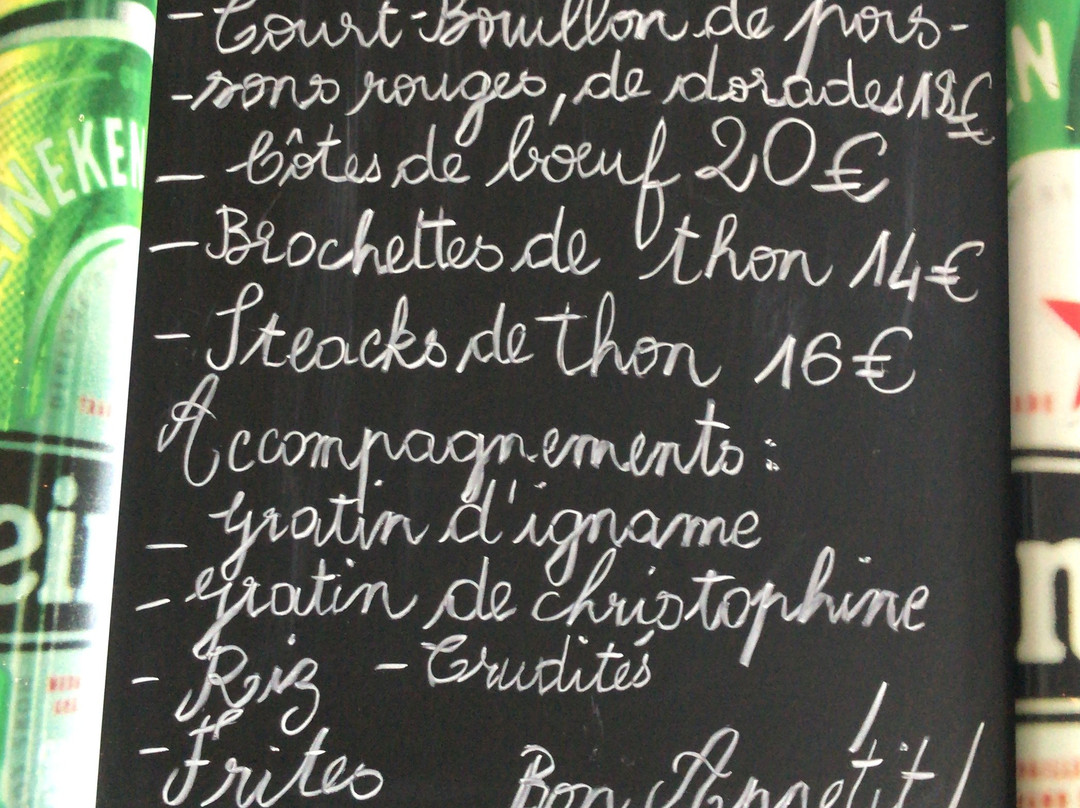 - Court-Bouillon de pois-
-sons rouges, de dorades 18€
- Côtes de boeuf 20€
- Brochettes de thon 14€
- Steacks de thon 16€
Accompagnements :
- gratin d'igname
- gratin de christophine
- Riz - Crudités
- Frites Bon Appétit !
HEINEKEN